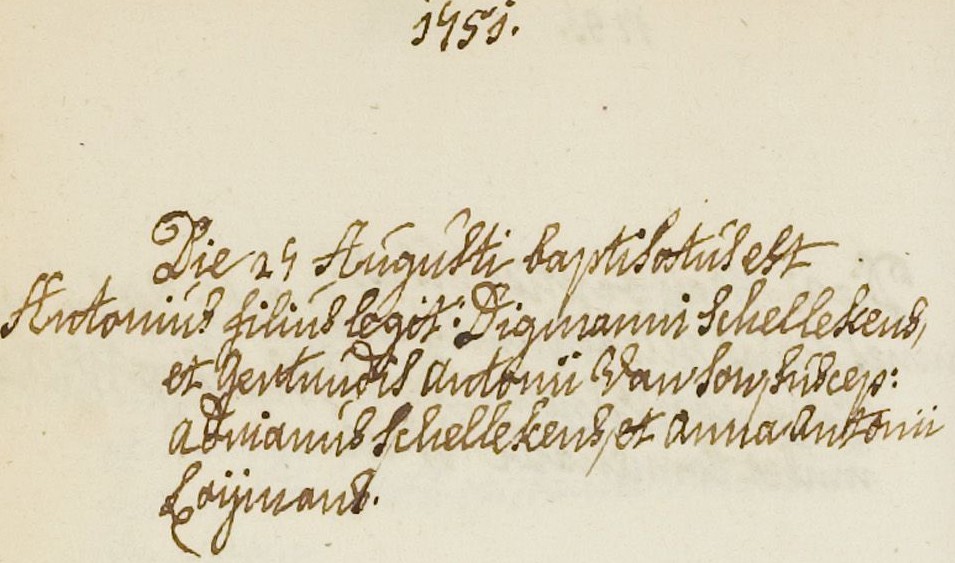 1751.
Die 24 Augusti baptisatus est
Antonius filius legit: Digmanni Schellekens,
et Gertrudis Antonii Van son, suscep:
Adrianus Schellekens, et Anna Antonii